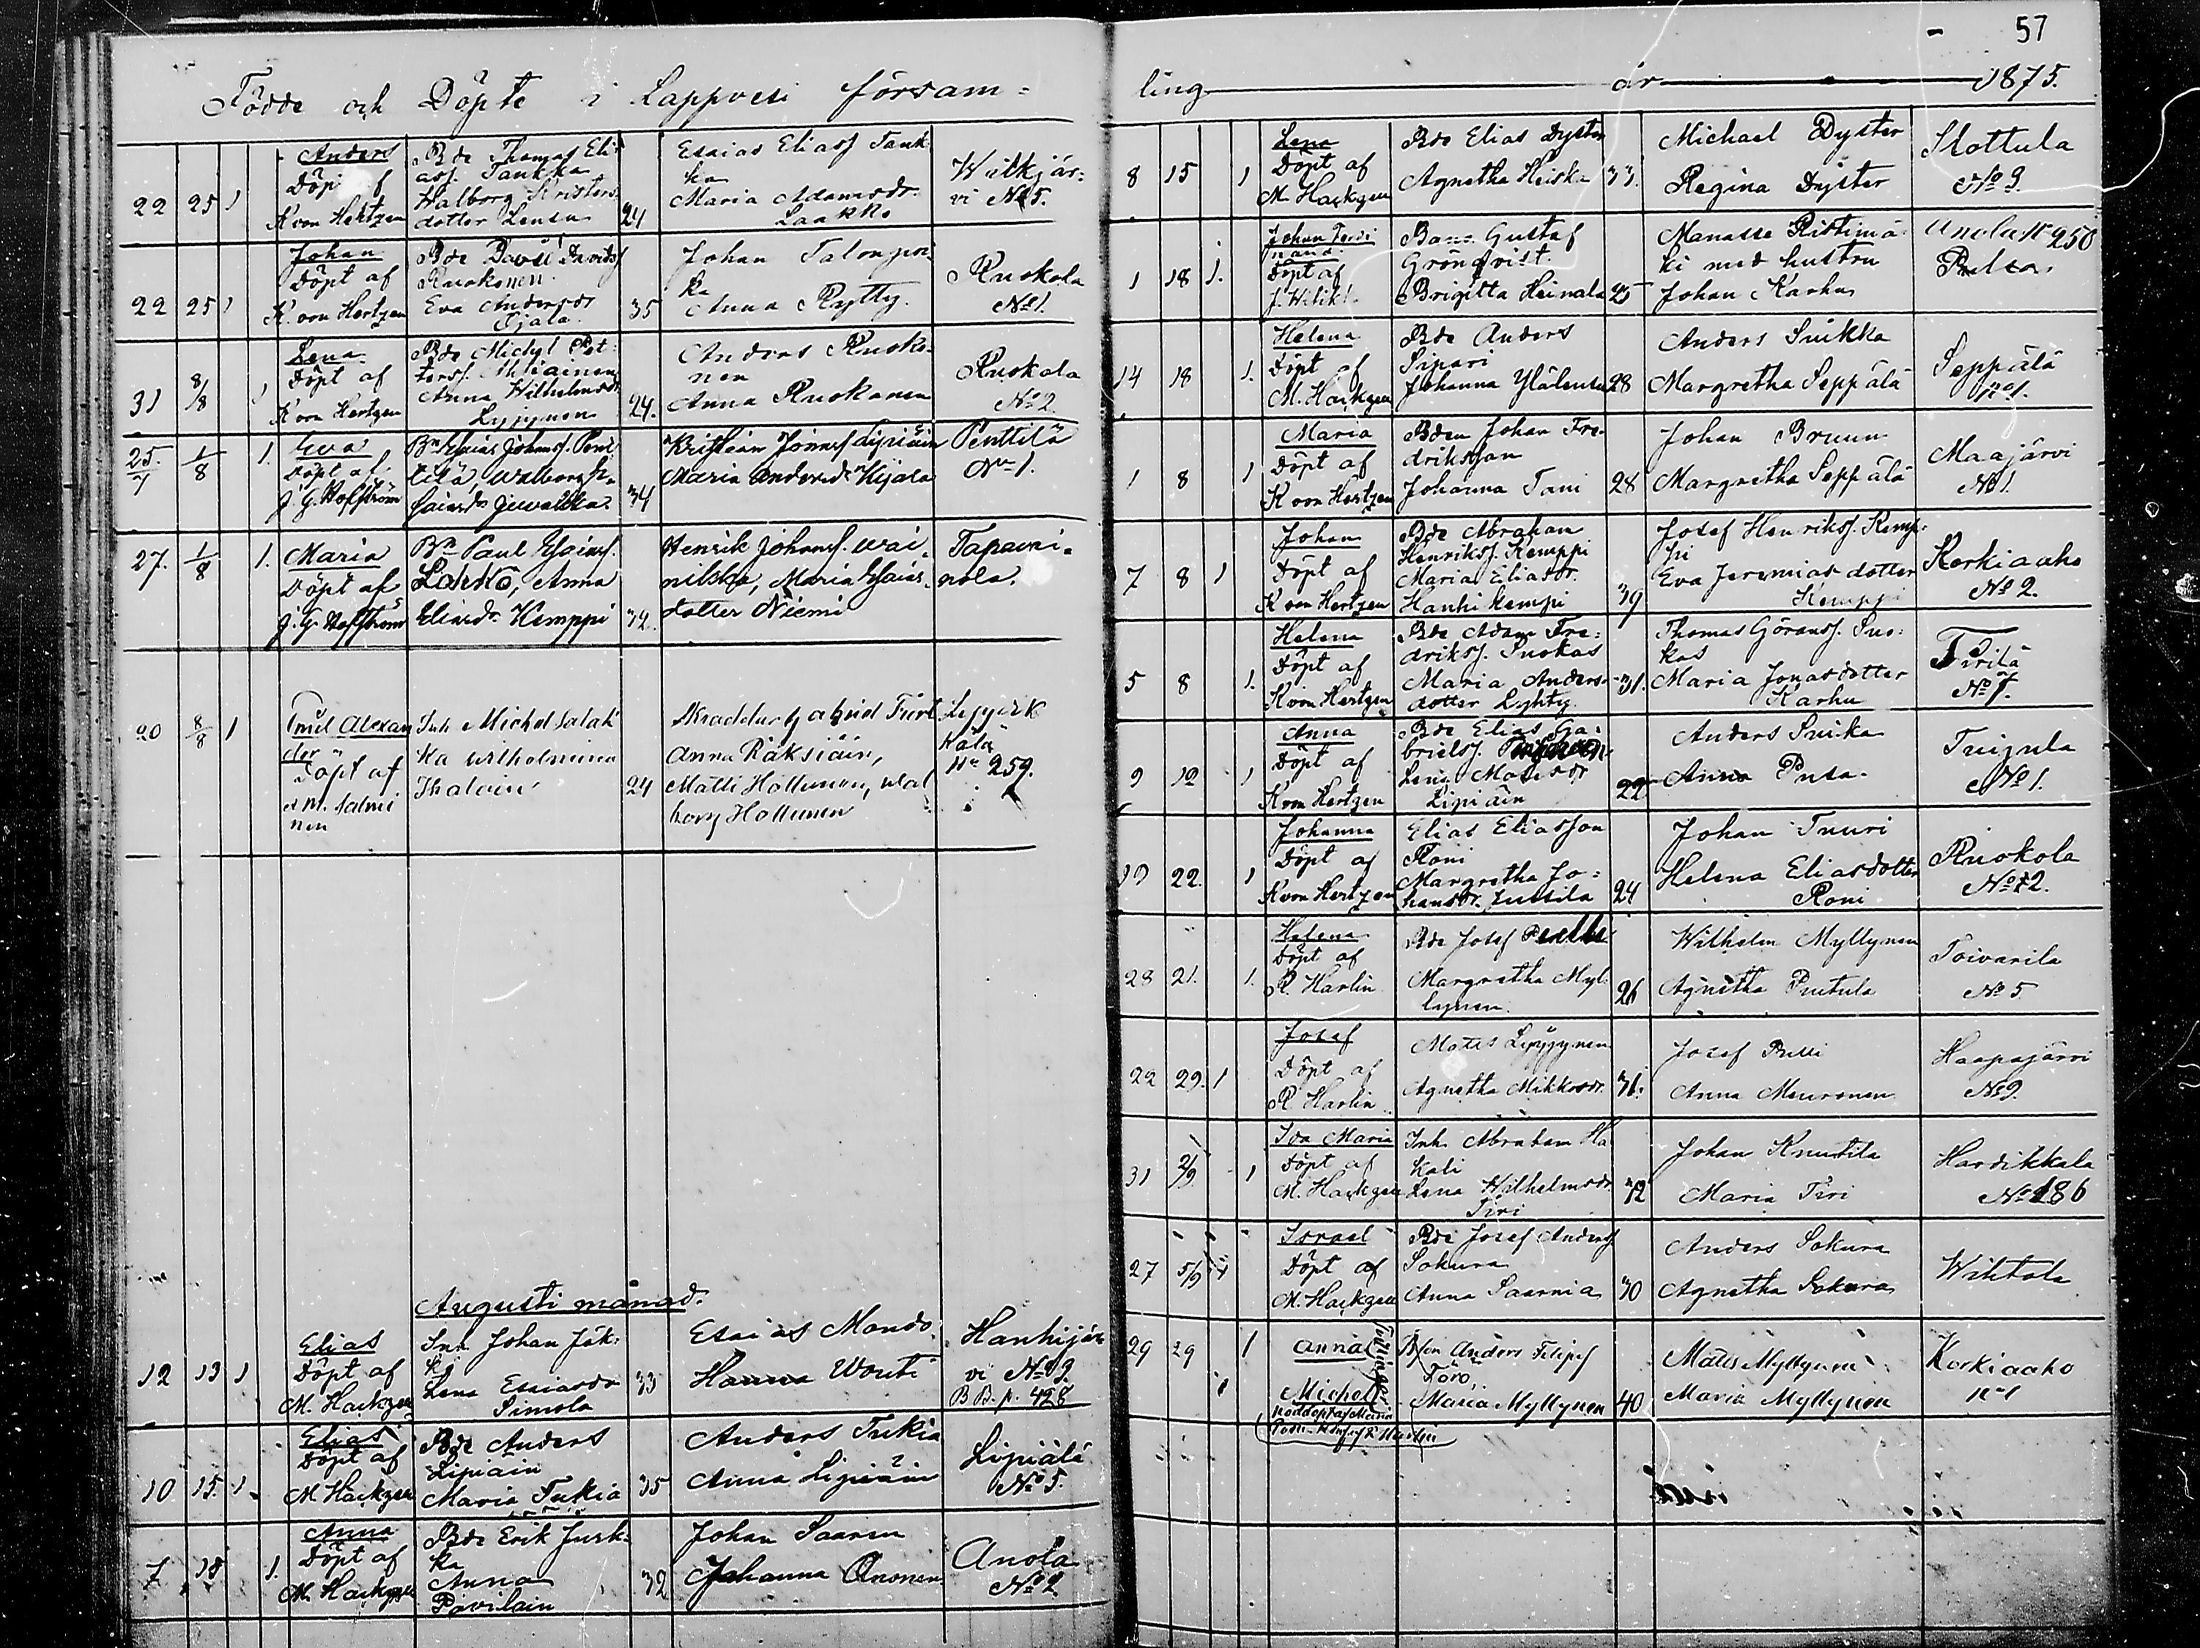 57
Födde och Döpte i Lappvesi försam=
ling år 1875.
22 25 1
Anders
Döpt af
K von Hertzen
Bde Thomas Eli
assf. Tankka
Walborg Kristers
dotter Lensu
24
Esaias Eliassf Tank
ka
Maria Adamsdr.
Laakko
Wilkjär=
vi No 5.
22 25 1
Johan
Döpt af
K. von Hertzen
Bde David Davidsf
Ruokonen
Eva Andersdr
Ojala
35
Johan Talonpoi
ka
Anna Rytty.
Ruokola
No 1.
31 8/8 1
Lena
Döpt af
K von Hertzen
Bde Michel Pet
tersf.
Anna Wilhelmsdr
Lyjynen
24.
Anders Ruoko
nen
Anna Ruokonen
Ruokola
No 2
25./7 1/8 1.
Eva
Döpt af
J. G. Hofström
Bn Esaias Johansf. Pent
tilä, Walborg E
saiasdr
34
Kristian Jönnesf Lipiäin
Maria Andersdr Kijala
Penttilä
No 1.
27. 1/8 1.
Maria
Döpt af
J. G. Hofström
Bn Paul Esaiasf.
Lakko, Anna
Eliasdr Kemppi
32.
Henrik Johansf. Wai,
nikka, Maria Esaias,
dotter Niemi
Tapavai,
nola.
20 8/8 1
Emil Alexan
der
Döpt af
A M. Salmi
nen
Inh Michel Salak
ka Wilhelmina
Thalvin
24
Skraddar Gabriel Fürt
Anna Räksiäin,
Matti Hollunen, Wal
borg Hollunen
kälä
No 259.
Augusti månad.
12 13 1
Elias
Döpt af
M. Hackzen
Inh. Johan Jäk=
kö
Lena Esaiasdr
Simola
33
Esaias Mondo
Hanna Wouti
Hanhijär
vi No 3.
B B. p. 428
10 15. 1.
Elias
Döpt af
M Hackzen
Bde Anders
Lipiäin
Maria Tukia
35
Anders Tukia
Anna Lipiäin
Lipiälä
No 5.
7 18 1.
Anna
Döpt af
M. Hackzen
Bde Erik Jusk=
ka
Anna
Pavilain
32
Johan Saaren
Johanna Ononen
Anola
No 2
8 15 1
Lena
Döpt af
M. Hackzen
Bde Elias Dyster
Agnetha Heiska
33.
Michael Dyster
Regina Dyster
Slottula
No 9.
1 18 1.
Johan Ferdi
nand
Döpt af
Gustaf
Grönqvist.
Brigitta Heinala
25
Manasse Ristimä
ki med hustru
Johan Karhu
Anola No 250
Pulsa.
14 18 1.
Helena
Döpt af
M. Hackzen
Bde Anders
Sipari
Johanna Ylälensu
28
Anders Suikka
Margretha Seppälä
Seppälä
No 1.
1 8 1
Maria
Döpt af
K von Hertzen
Bden Johan Fre
driksson
Johanna Tani
28
Johan Bruun
Margretha Seppälä
Maajärvi
No 1.
7 8 1
Johan
Döpt af
K von Hertzen
Bde Abraham
Henriksf. Kemppi
Maria Eliasdr.
Hanhi kempi
39
Josef Henriksf. Kemp
pi
Eva Jeremias dotter
Kemppi
Korkiaaho
No 2.
5 8 1.
Helena
Döpt af
K von Hertzen
Bde Adam Fre=
driksf. Suokas
Maria Anders=
dotter Lyhty
31.
Thomas Göransf. Suo=
kas
Maria Jonasdotter
Karhu
Tiritä
No 7.
9 12 1
Anna
Döpt af
K von Hertzen
Bde Elias Ga=
brielsf.
Lena Matsdr
Lipiäin
22
Anders Suika
Anna Pusa.
Tuigula
No 1.
19 22. 1
Johanna
Döpt af
K von Hertzen
Elias Eliasson
Roni
Margretha Jo=
hansdr. Jussila
24
Johan Tuuri
Helena Eliasdotter
Roni
Ruokola
No 12.
28 21. 1.
Helena
Döpt af
R. Harlin
Bde Josef
Margretha Myl
lynen.
26
Wilhelm Myllynen
Agnetha Puttula
Toivarila
No 5
22 29. 1
Josef
Döpt af
R. Harlin
Mats Lyijynen
Agnetha Mikkosdr.
36.
Josef Pulli
Anna Meuronen
Haapajärvi
No 9.
31 2/9 1
Ida Maria
Döpt af
M. Hackzen
Inh. Abraham Ha
kali
Lena Wilhelmsdr
Tiri
32
Johan Knuttila
Maria Tiri
Hardikkala
No 186
27 5/9 1
Israel
Döpt af
M. Hackzen
Bde Josef Andersf
Sakura
Anna Saarnia
30
Anders Sakura
Agnetha Sakura
Wihtola
29 29 1
1
Anna
Michel
Tvillingar
nöddöpt af Maria
Bon Anders Filipsf
Törö,
Maria Myllynen
40
Mats Myllynen
Maria Myllynen
Korkiaaho
No 1